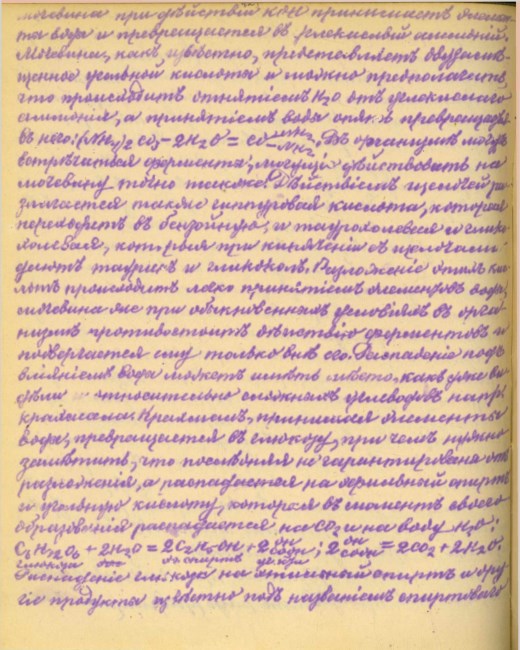 мочевина при дѣйствіи КОН принимаетъ элемен-
та вода и превращается въ углекислый аммоній.
Мочевина, какъ извѣстно, представляетъ обезвож-
щенное угольной кислоты и можно предполагать,
что происходитъ отнятіемъ H2O отъ углекислаго
аммонія, а принятіемъ вода опять превращается
въ него: (NH4)2 CO3 - 2H2O = CO NH2 NH2. Въ организмѣ могутъ
встрѣчаться ферменты, могущіе дѣйствовать на
мочевину точно также. Дѣйствіемъ щелочей ра-
злагается также гиппуровая кислота, которая
переходитъ въ бензойную, и таурохолевая и глико-
холевая, которыя при кипяченіи съ щелочами
даютъ тауринъ и гликоколъ. Разложеніе этихъ ки-
слотъ происходитъ легко принятіемъ элементовъ воды,
мочевина же при обыкновенныхъ условіяхъ въ орга-
низмѣ противостоитъ дѣйствію ферментовъ и
подвергается ему только внѣ его. Распаденіе подъ
вліяніемъ вода можетъ имѣть мѣсто, какъ уже ви-
дѣли и относительно сложныхъ углеводовъ напр.
крахмала. Крахмалъ, принимая элементы
вода, превращается въ глюкозу, при чемъ нужно
замѣтить, что послѣдняя не гарантирована отъ
разложенія, а распадается на этильный спиртъ
и угольную кислоту, которая въ моментъ своего
образованія распадается на CO2 и на воду H2O:
C6H12O6 + 2H2O = 2C2H5OH + 2 OH COOH; 2 OH COOH = 2CO2 + 2H2O.
глюкоза вода эт. спиртъ уг. к-та
Распаденіе глюкоза на этильный спиртъ и дру-
гіе продукта извѣстно подъ названіемъ спиртового